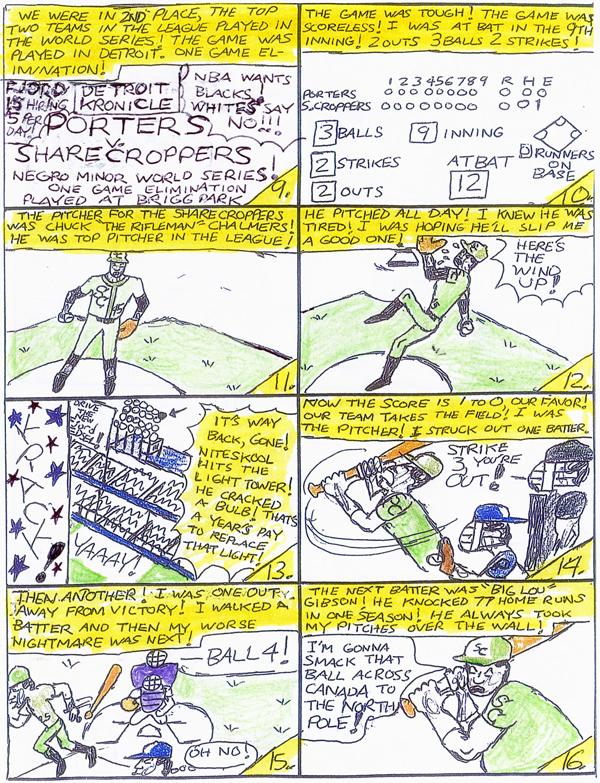 WE WERE IN 2ND PLACE, THE TOP
TWO TEAMS IN THE LEAGUE PLAYED IN
THE WORLD SERIES! THE GAME WAS
PLAYED IN DETROIT. ONE GAME EL-
IMINATION!
FJORD
IS HIRING
5 PER
DAY!
DETROIT
KRONICLE
NBA WANTS
BLACKS!
WHITES SAY
NO!!!
PORTERS
V.
SHARECROPPERS!
NEGRO MINOR WORLD SERIES!
ONE GAME ELIMINATION
PLAYED AT BRIGG PARK
9.
THE GAME WAS TOUGH! THE GAME WAS
SCORELESS! I WAS AT BAT IN THE 9TH
INNING! 2 OUTS 3 BALLS 2 STRIKES!
1 2 3 4 5 6 7 8 9 R H E
PORTERS 0 0 0 0 0 0 0 0 0 0 0
S.CROPPERS 0 0 0 0 0 0 0 0 0 0 1
3 BALLS
9 INNING
2 STRIKES
2 OUTS
AT BAT
12
0 RUNNERS
ON
BASE
10.
THE PITCHER FOR THE SHARECROPPERS
WAS CHUCK "THE RIFLEMAN" CHALMERS!
HE WAS TOP PITCHER IN THE LEAGUE!
11.
HE PITCHED ALL DAY! I KNEW HE WAS
TIRED! I WAS HOPING HE'LL SLIP ME
A GOOD ONE!
HERE'S
THE
WIND
UP!
12.
CRACK!
DRIVE
THE
NEW
FJORD
IT'S WAY
BACK, GONE!
NITESKOOL
HITS THE
LIGHT TOWER!
HE CRACKED
A BULB! THATS
A YEAR'S PAY
TO REPLACE
THAT LIGHT!
YAAAY!
13.
NOW THE SCORE IS 1 TO 0, OUR FAVOR!
OUR TEAM TAKES THE FIELD! I WAS
THE PITCHER! I STRUCK OUT ONE BATTER.
STRIKE
3, YOU'RE
OUT!
14.
THEN ANOTHER! I WAS ONE OUT
AWAY FROM VICTORY! I WALKED A
BATTER AND THEN MY WORSE
NIGHTMARE WAS NEXT!
BALL 4!
OH NO!
15.
THE NEXT BATTER WAS "BIG LOU"
GIBSON! HE KNOCKED 77 HOME RUNS
IN ONE SEASON! HE ALWAYS TOOK
MY PITCHES OVER THE WALL!
I'M GONNA
SMACK THAT
BALL ACROSS
CANADA TO
THE NORTH
POLE!
SC
16.